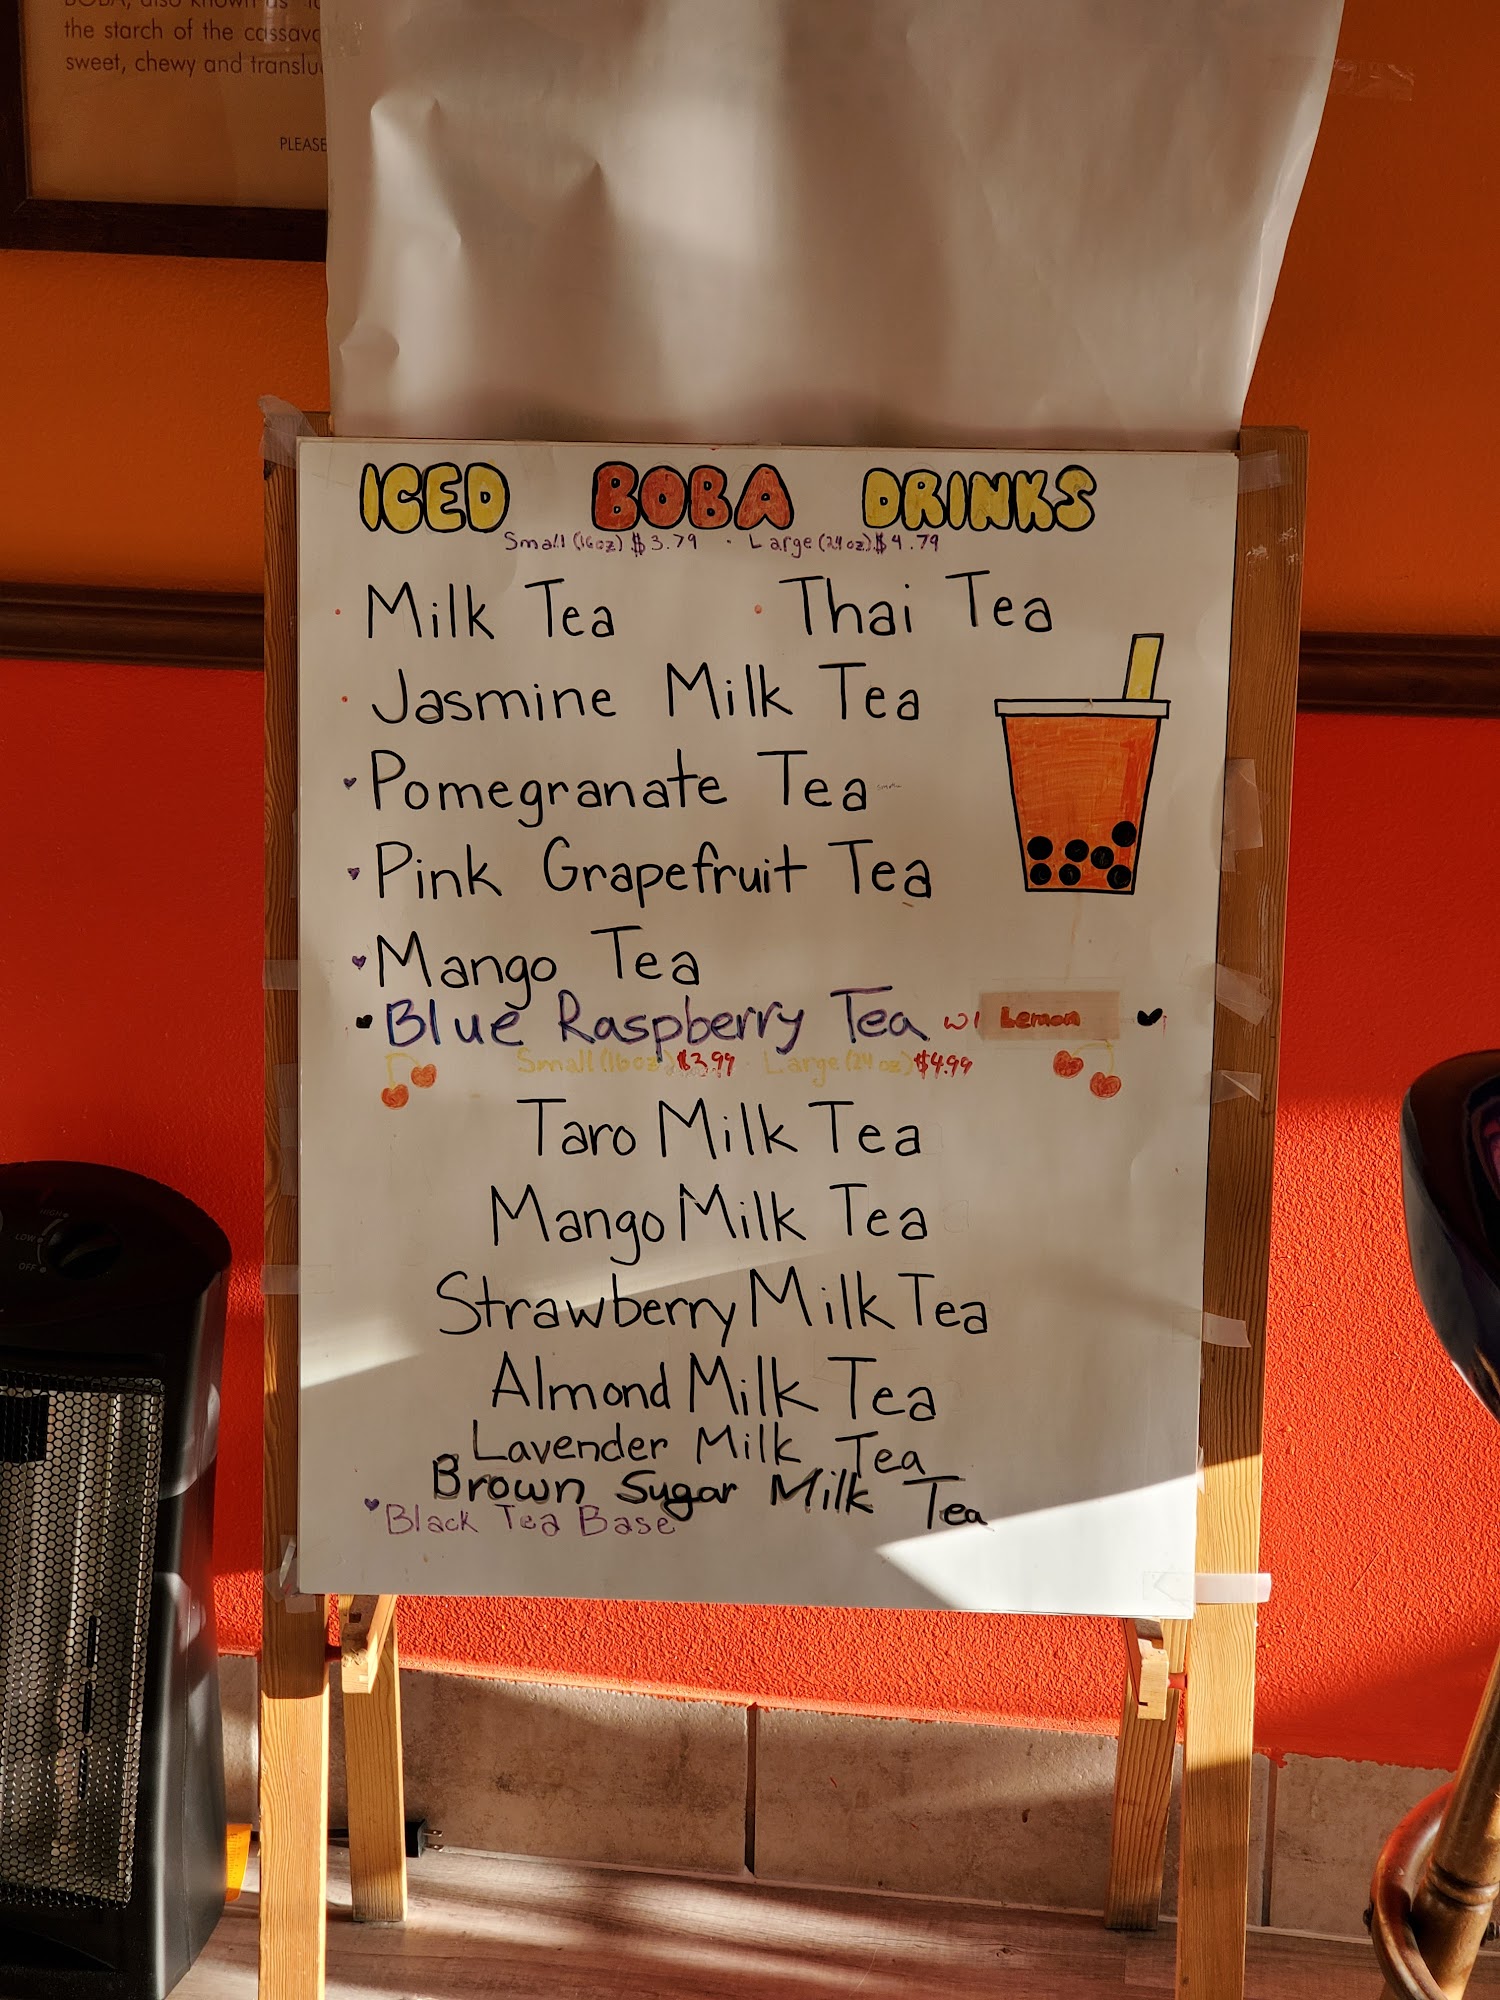 BOBA, also known as
the starch of the
sweet, chewy and
PLEASE
ICED BOBA DRINKS
Small (16oz) $3.79 · Large (24oz) $4.79
· Milk Tea · Thai Tea
· Jasmine Milk Tea
Pomegranate Tea
Pink Grapefruit Tea
Mango Tea
Blue Raspberry Tea w/ Lemon
Small (16oz) $3.99 Large (24oz) $4.99
Taro Milk Tea
Mango Milk Tea
Strawberry Milk Tea
Almond Milk Tea
Lavender Milk Tea
Brown Sugar Milk Tea
Black Tea Base
HIGH
LOW
OFF